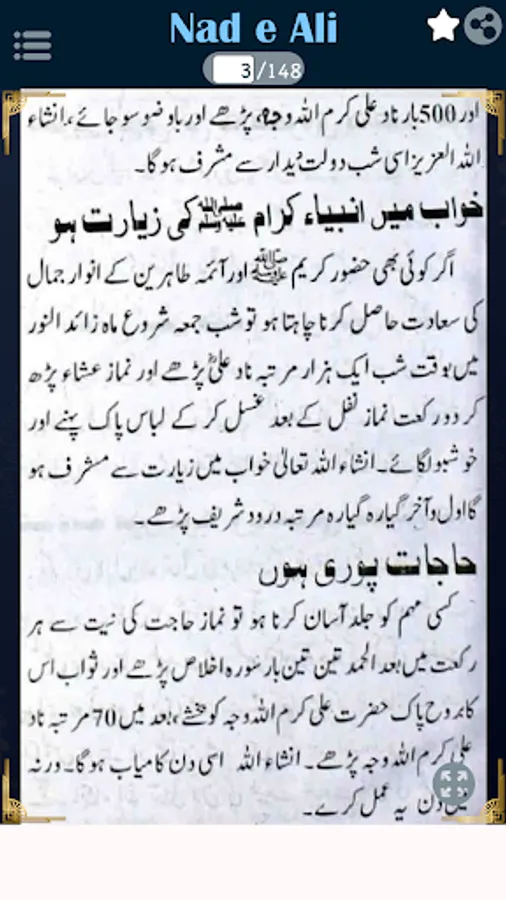 Nad e Ali
3/148
اور 500 بار ناد علی کرم اللہ وجہہ، پڑھے اور باوضو سو جائے، انشاء
اللہ العزیز اسی شب دولت دیدار سے مشرف ہوگا۔
خواب میں انبیاء کرام ﷺ کی زیارت ہو
اگر کوئی بھی حضور کریم ﷺ اور آئمہ طاہرین کے انوار جمال
کی سعادت حاصل کرنا چاہتا ہو تو شب جمعہ شروع ماہ زائد النور
میں بوقت شب ایک ہزار مرتبہ ناد علیؓ پڑھے اور نماز عشاء پڑھ
کر دو رکعت نماز نفل کے بعد غسل کر کے لباس پاک پہنے اور
خوشبو لگائے۔ انشاء اللہ تعالیٰ خواب میں زیارت سے مشرف ہو
گا اول و آخر گیارہ گیارہ مرتبہ درود شریف پڑھے۔
حاجات پوری ہوں
کسی مہم کو جلد آسان کرنا ہو تو نماز حاجت کی نیت سے ہر
رکعت میں بعد الحمد تین تین بار سورہ اخلاص پڑھے اور ثواب اس
کا بروح پاک حضرت علی کرم اللہ وجہ کو بخشے، بعد میں 70 مرتبہ ناد
علی کرم اللہ وجہ پڑھے۔ انشاء اللہ اسی دن کامیاب ہوگا۔ ورنہ
دن یہ عمل کرے۔